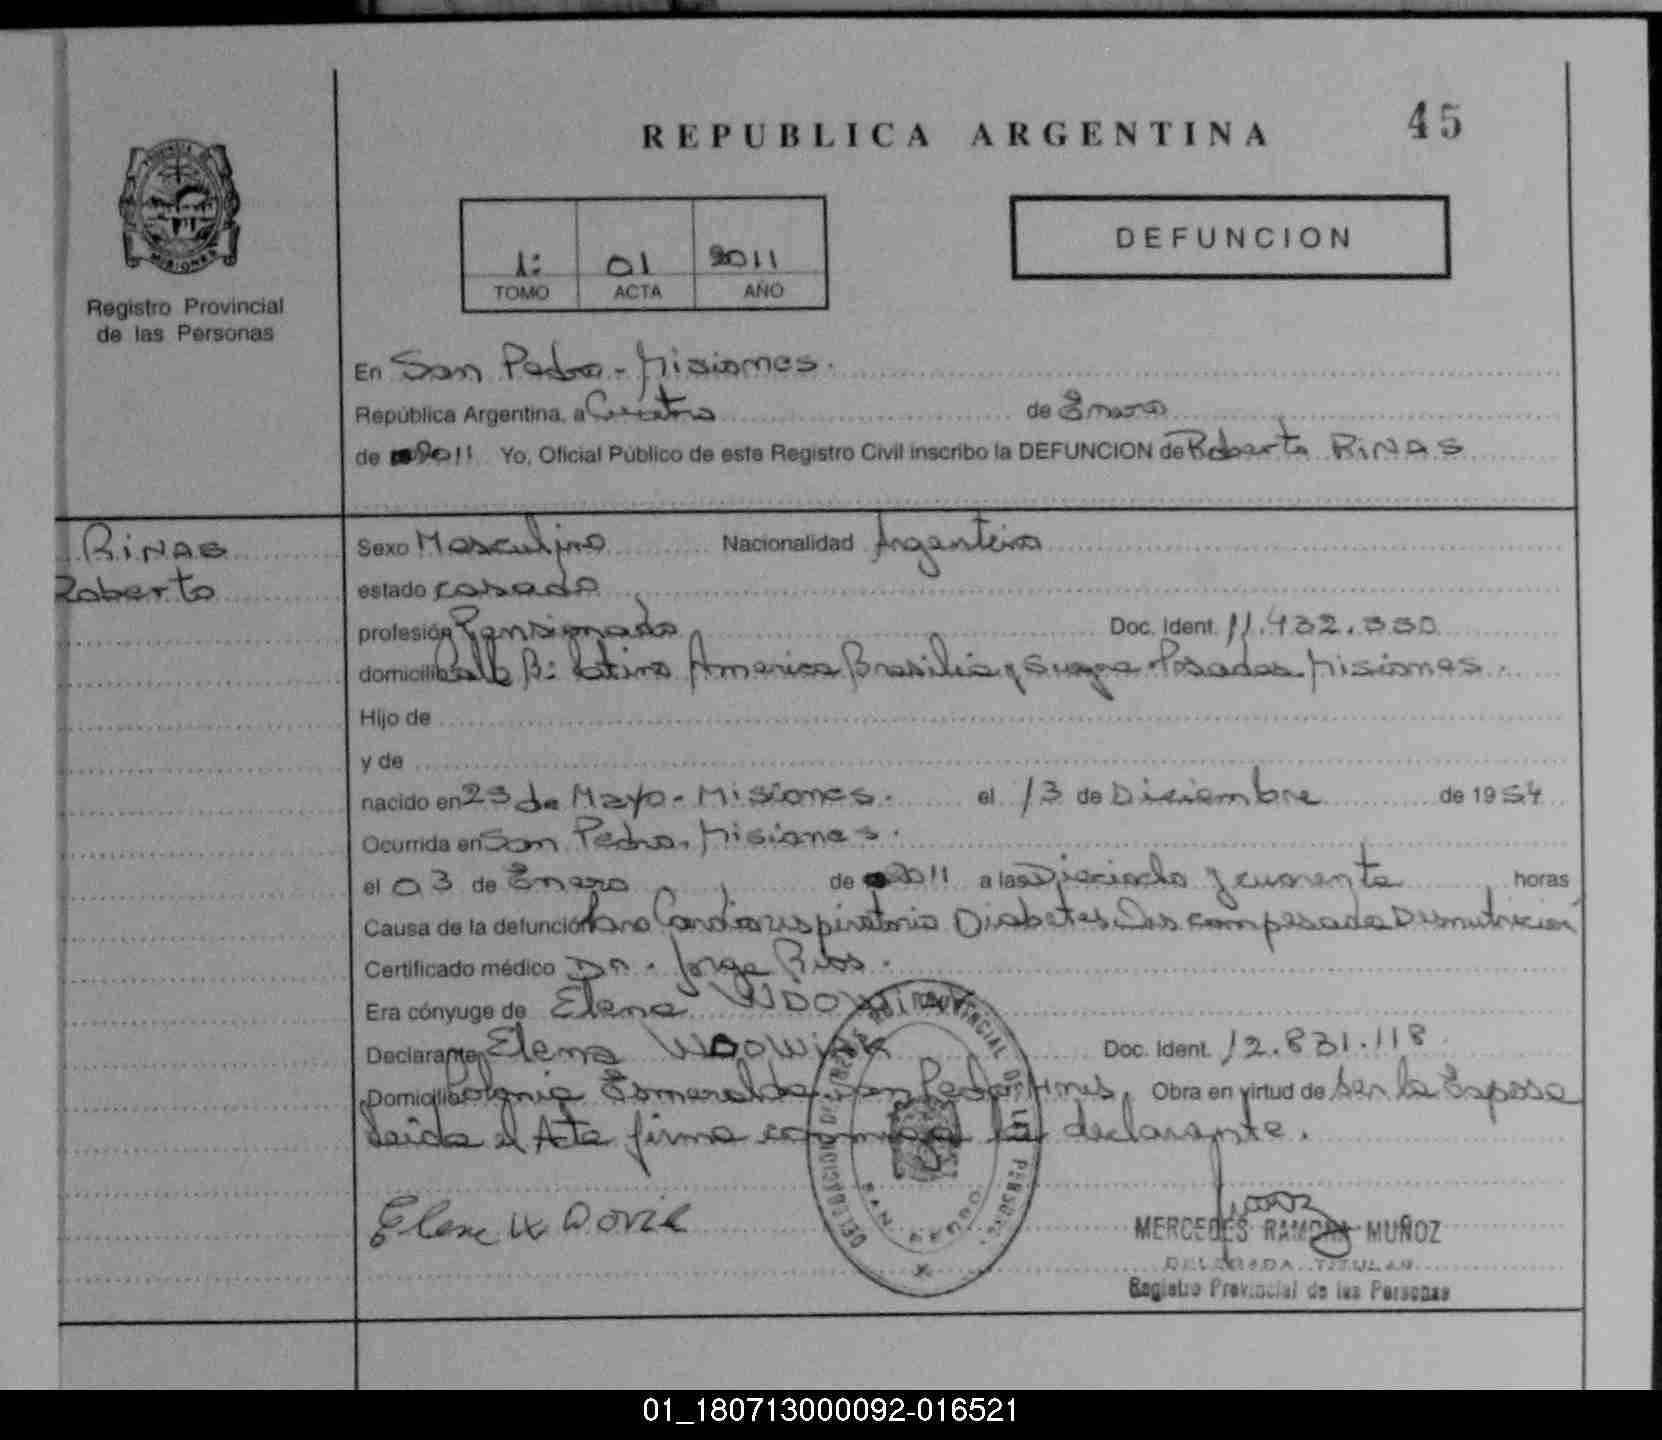 45
REPUBLICA ARGENTINA
PROVINCIA DE
MISIONES
Registro Provincial
de las Personas
1: 01 2011
TOMO ACTA AÑO
DEFUNCION
En San Pedro - Misiones.
República Argentina, a Cuatro de Enero
de 2011 Yo, Oficial Público de este Registro Civil inscribo la DEFUNCION de Roberto RiNAS
RiNAS
Roberto
Sexo Masculino Nacionalidad Argentino
estado casado
profesión Pensionado Doc. Ident. 11.432.330
domicilio Calle B: Latino America Brasilia y Posadas. Misiones.
Hijo de
y de
nacido en 25 de Mayo - Misiones. el 13 de Diciembre de 1954
Ocurrida en San Pedro, Misiones.
el 03 de Enero de 2011 a las Dieciocho y cuarenta horas
Causa de la defunción Paro Cardiorespiratorio Diabetes Descompesada Desnutricion
Certificado médico Dr. Jorge Rios.
Era cónyuge de Elena WDOWiak
Declarante Elena WDOWiak Doc. Ident. 12.831.118
Domicilio Colonia Esmeralda San Pedro Mnes. Obra en virtud de Ser la Esposa
Leida el Acta firma conmigo la declarante.
Elena
MERCEDES RAMONA MUÑOZ
DELEGADA TITULAR
Registro Provincial de las Personas
SAN PEDRO
01_180713000092-016521